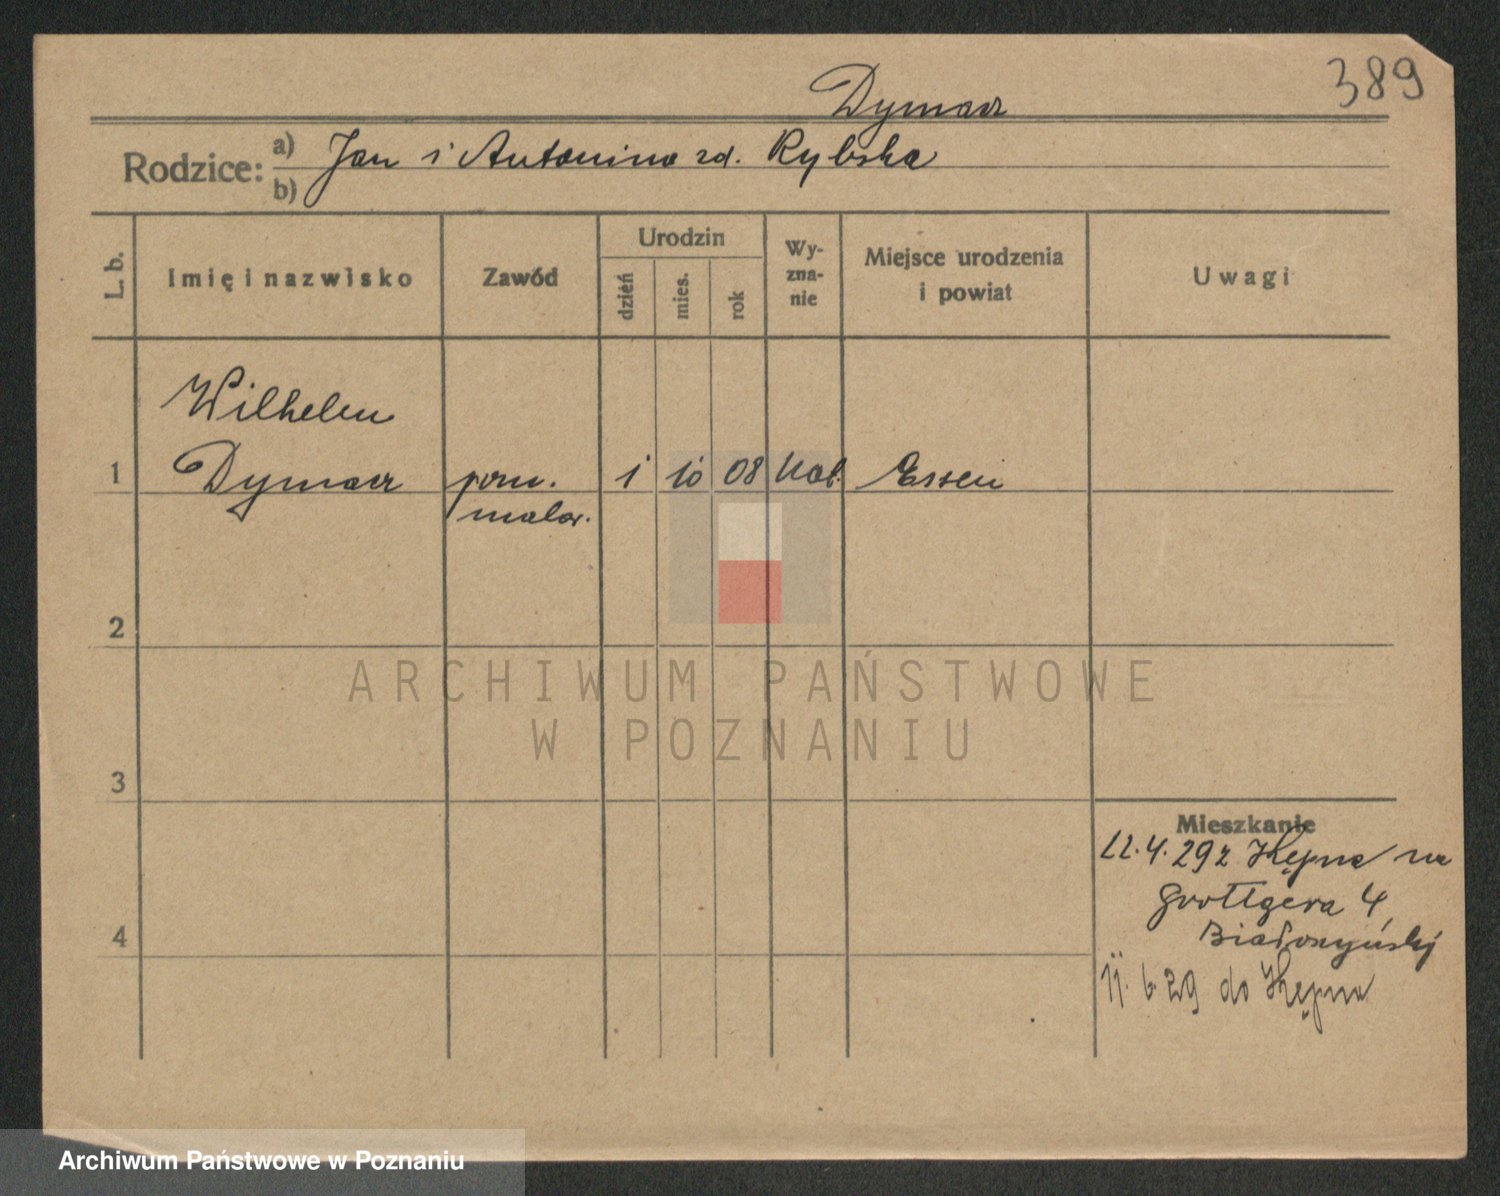 389
Dymacz
Rodzice: a) Jan i Antonina zd. Rybska
b)
L. b.
Imię i nazwisko
Zawód
Urodzin
dzień
mies.
rok
Wy-
zna-
nie
Miejsce urodzenia
i powiat
Uwagi
Wilhelm
1 Dymacz pom. 1 10 08 kat. Essen
malar.
2
ARCHIWUM PAŃSTWOWE
W POZNANIU
3
Mieszkanie
22.4.29 z Kępna na
Grottgera 4
4
11.6.29 do Kępna
Archiwum Państwowe w Poznaniu